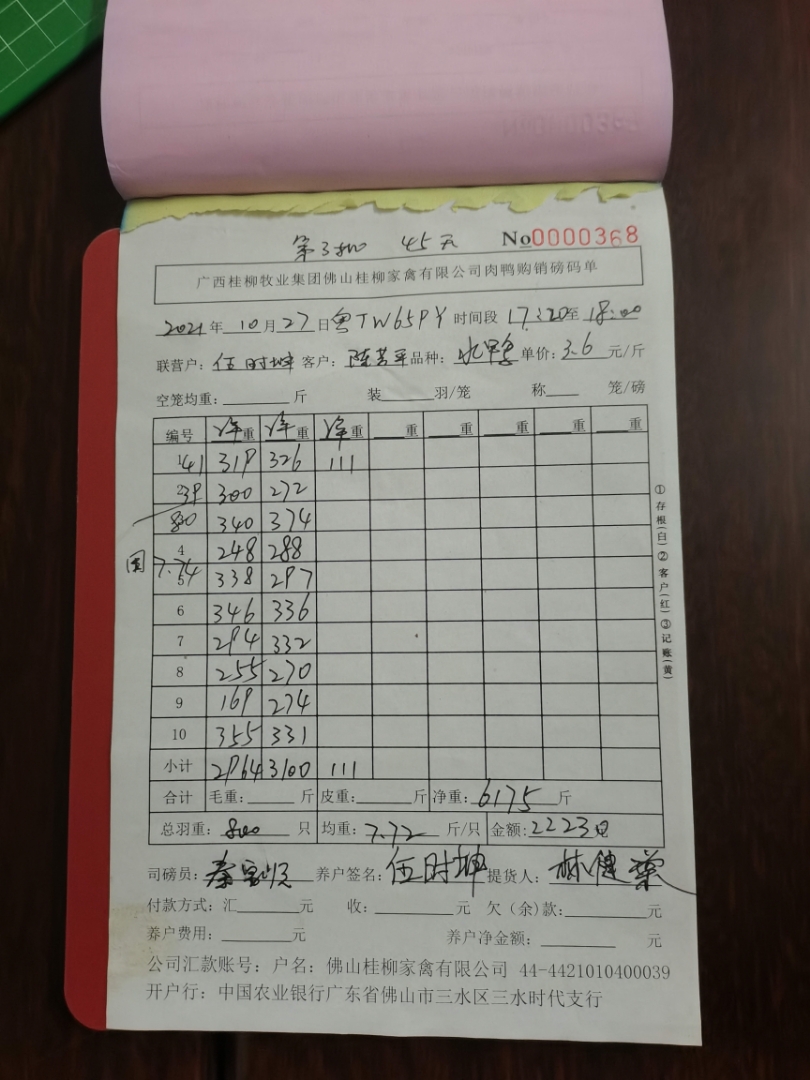 第3批 45天 No0000368
广西桂柳牧业集团佛山桂柳家禽有限公司肉鸭购销磅码单
2021年10月27日粤TW65PY 时间段 17:20至18:00
联营户：伍时坤 客户：陈芳平 品种： 单价：3.6元/斤
空笼均重： 斤 装 羽/笼 称 笼/磅
编号 净重 净重 净重 重 重 重 重 重
1 41 319 326 111
2 39 300 272
800 340 374
4 248 288
5 7.74 338 297
6 346 336
7 294 332
8 255 270
9 169 274
10 355 331
小计 2964 3100 111
合计 毛重： 斤 皮重： 斤 净重：6175斤
总羽重：800只 均重：7.72斤/只 金额：22230
司磅员： 养户签名：伍时坤 提货人：林健
付款方式：汇 元 收： 元 欠（余）款： 元
养户费用： 元 养户净金额： 元
公司汇款账号：户名：佛山桂柳家禽有限公司 44-4421010400039
开户行：中国农业银行广东省佛山市三水区三水时代支行
①存根(白)②客户(红)③记账(黄)